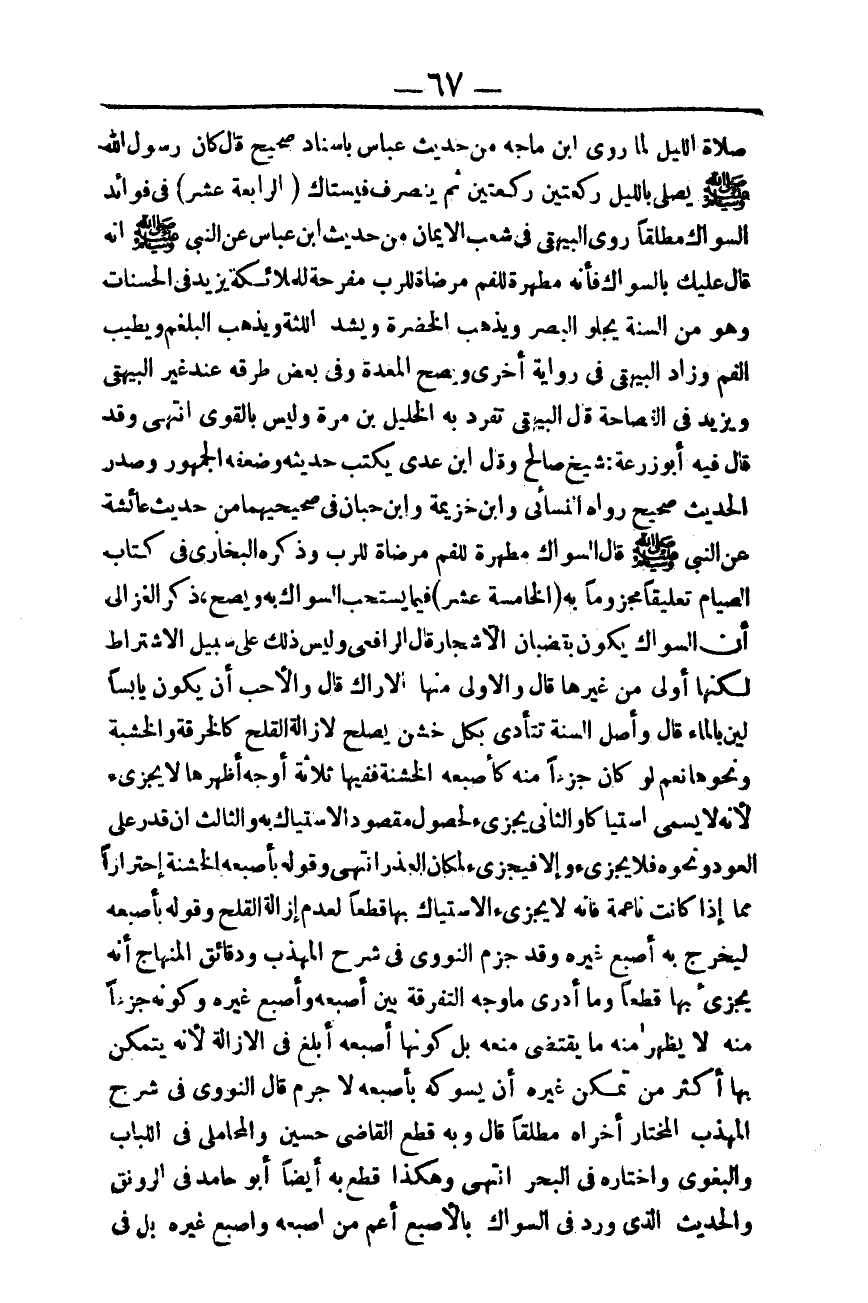 — ٦٧ —
صلاة الليل لما روى ابن ماجه من حديث عباس باسناد صحيح قال كان رسول الله
ﷺ يصلى بالليل ركعتين ركعتين ثم ينصرف فيستاك ( الرابعة عشر ) فى فوائد
السواك مطلقاً روى البيهقى فى شعب الايمان من حديث ابن عباس عن النبى ﷺ انه
قال عليك بالسواك فأنه مطهرة للفم مرضاة للرب مفرحة للملائكة يزيد فى الحسنات
وهو من السنة يجلو البصر ويذهب الخضرة ويشد اللثة ويذهب البلغم ويطيب
الفم وزاد البيهقى فى رواية أخرى ويصح المعدة وفى بعض طرقه عند غير البيهقى
ويزيد فى الفصاحة قال البيهقى تفرد به الخليل بن مرة وليس بالقوى انتهى وقد
قال فيه أبو زرعة : شيخ صالح وقال ابن عدى يكتب حديثه وضعفه الجمهور وصدر
الحديث صحيح رواه النسائى وابن خزيمة وابن حبان فى صحيحيهما من حديث عائشة
عن النبى ﷺ قال السواك مطهرة للفم مرضاة للرب وذكره البخارى فى كتاب
الصيام تعليقاً مجزوماً به (الخامسة عشر) فيما يستحب السواك به ويصح، ذكر الغزالى
أن السواك يكون بقضبان الأشجار قال الرافعى وليس ذلك على سبيل الاشتراط
لكنها أولى من غيرها قال والاولى منها الاراك قال والأحب أن يكون يابساً
لين بالماء قال وأصل السنة تتأدى بكل خشن يصلح لازالة القلح كالخرقة والخشبة
ونحوها نعم لو كان جزءاً منه كأصبعه الخشنة ففيها ثلاثة أوجه أظهرها لا يجزىء
لأنه لا يسمى استياكا والثانى يجزىء لحصول مقصود الاستياك به والثالث ان قدر على
العود ونحوه فلا يجزىء وإلا فيجزىء لمكان العذر انتهى وقوله بأصبعه الخشنة إحترازاً
مما إذا كانت ناعمة فانه لا يجزىء الاستياك بها قطعاً لعدم إزالة القلح وقوله بأصبعه
ليخرج به أصبع غيره وقد جزم النووى فى شرح المهذب ودقائق المنهاج أنه
يجزىء بها قطعاً وما أدرى ما وجه التفرقة بين أصبعه وأصبع غيره وكونه جزءاً
منه لا يظهر منه ما يقتضى منعه بل كونها أصبعه أبلغ فى الازالة لأنه يتمكن
بها أكثر من تمكن غيره أن يسوكه بأصبعه لا جرم قال النووى فى شرح
المهذب المختار أخراه مطلقاً قال وبه قطع القاضى حسين والمحاملى فى اللباب
والبغوى واختاره فى البحر انتهى وهكذا قطع به أيضاً أبو حامد فى الرونق
والحديث الذى ورد فى السواك بالأصبع أعم من اصبعه واصبع غيره بل فى